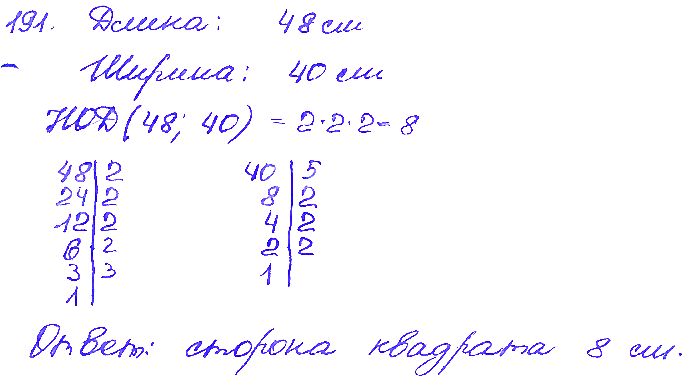 191. Длина: 48 см
– Ширина: 40 см
НОД (48; 40) = 2·2·2 = 8
48 | 2 40 | 5
24 | 2 8 | 2
12 | 2 4 | 2
6 | 2 2 | 2
3 | 3 1 |
1 |
Ответ: сторона квадрата 8 см.